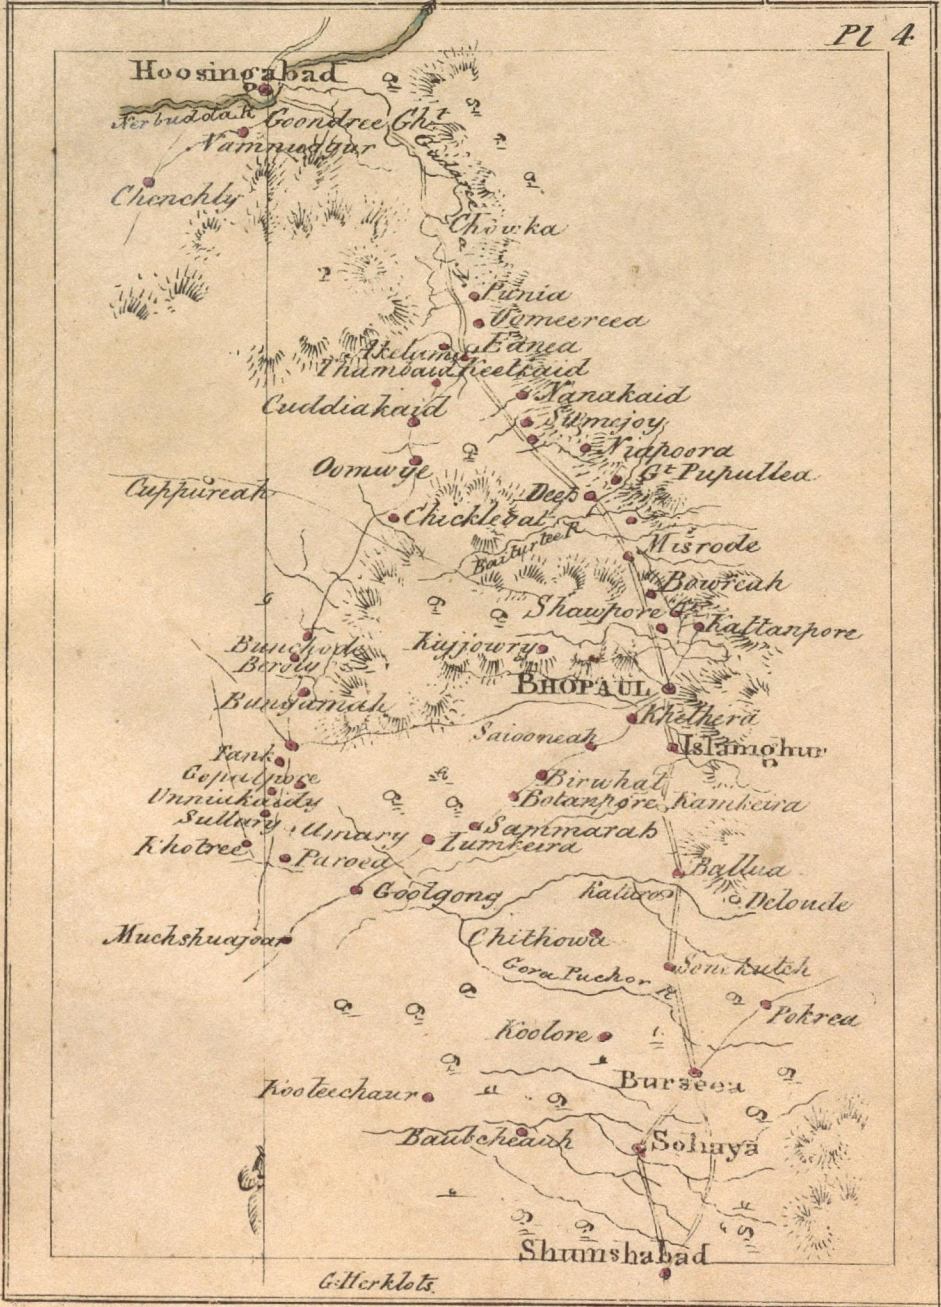 Pl 4
Hoosingabad
Nerbuddah R
Goondree Ght
Namnuggur
Chenchly
Chowka
Punia
Oomeereea
Eanea
Akeluma
Keelkaid
Nanakaid
Cuddiakaid
Sumejoy
Niapoora
Oomwye
Gt Pupullea
Cuppureah
Deep
Chicklebat
Misrode
Bowreah
Shawpore
Kaltanpore
Kujjowry
Beroly
BHOPAUL
Bungamah
Khethera
Saiooneah
Islamghur
Tank
Gopalpore
Birwhat
Botanpore
Kamkeira
Unniukaidy
Sullary
Umary
Sammarah
Lumkeira
Khotree
Paroea
Ballua
Goolgong
Deloude
Muchshuagoar
Chithowa
Gora Puchor R
Sonekutch
Pokrea
Koolore
Burseea
Kooteechaur
Baubcheauh
Sohaya
Shumshabad
G. Herklots.